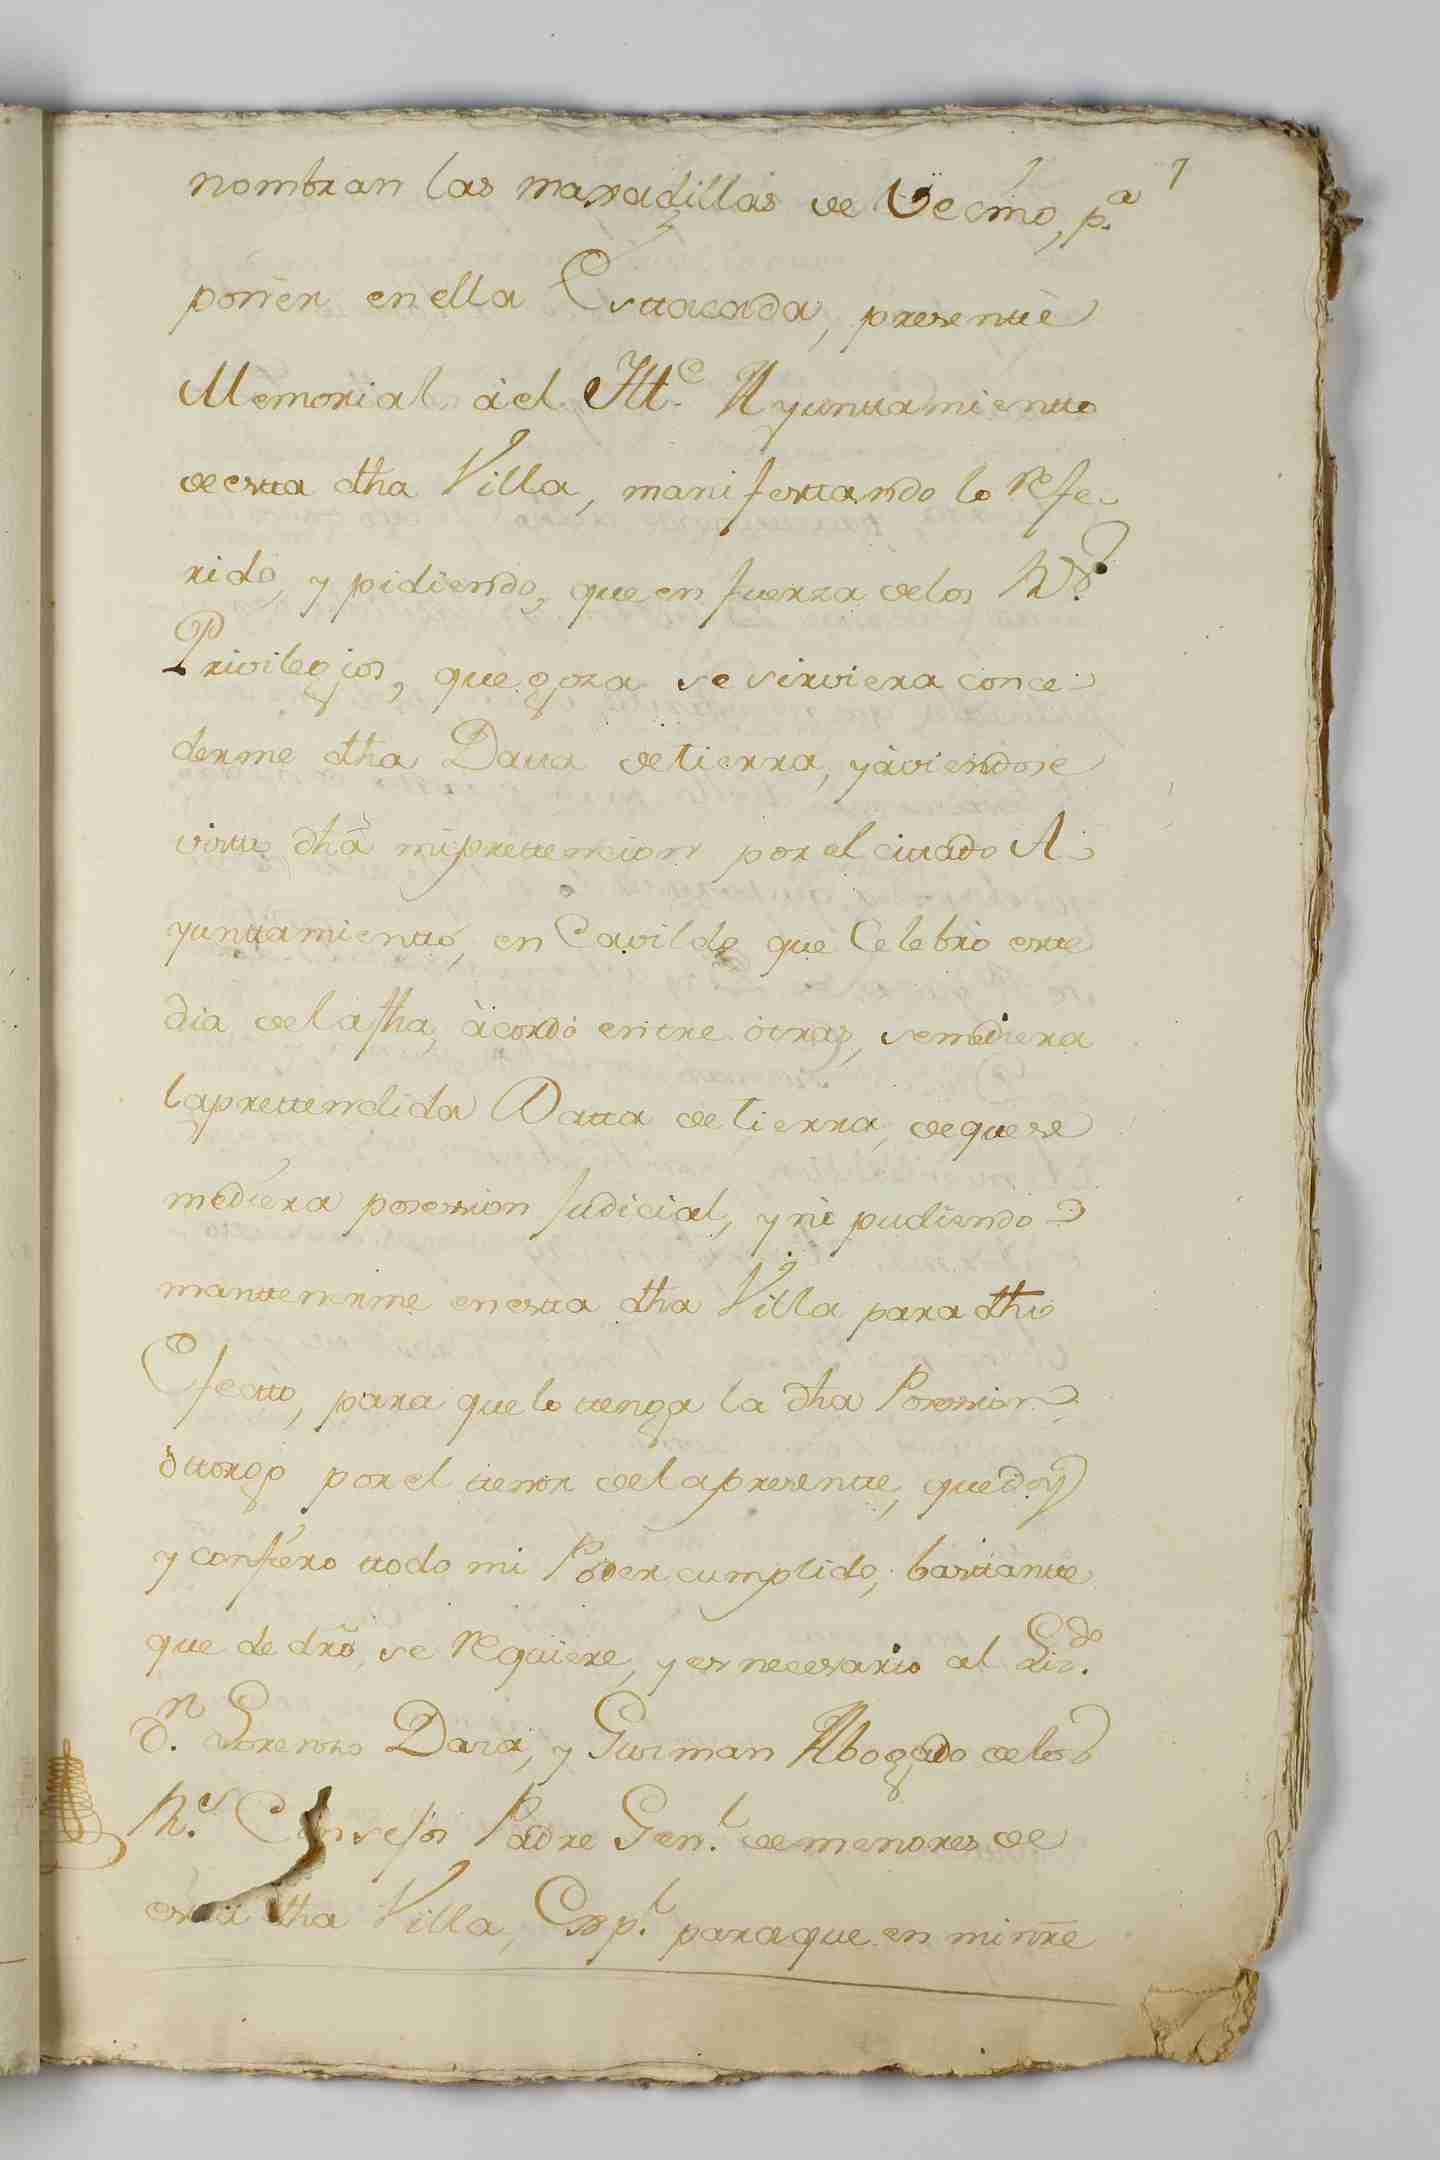 7
nombran las mansadillas de Vecino, p.ª
poner en ella Esttacada, presenttè
Memorial àel Iltt.e Ayunttamientto
de estta dha Villa, manifesttando lo refe-
rido, y pidiendo, que en fuerza delos R.s
Privilegios, que goza se sirviera conce-
derme dha Datta de tierra, y àviendose
vistto dhã mi prettencion por el cittado A-
yunttamientto, en Cavildo, que Celebrò estte
dia de la ftha, àcordò entre òtras, seme diera
la prettendida Datta de tierra, de que se
me diera posession Judicial, y nò pudiendo
manttenerme en estta dha Villa para dho
Efectto, para que lo ttenga la dha Posession,
òttorgo por el ttenor de la presentte, que doy
y confiero ttodo mi Poder cumplido, basttantte
que de dr̃o se requiere, y es necesario al Liz.do
D.n Lorenzo Daza, y Guzman Abogado delos
R.s Consejos Padre Gen.l de menores de
estta dha Villa, Esp.l para que en mi nr̃e